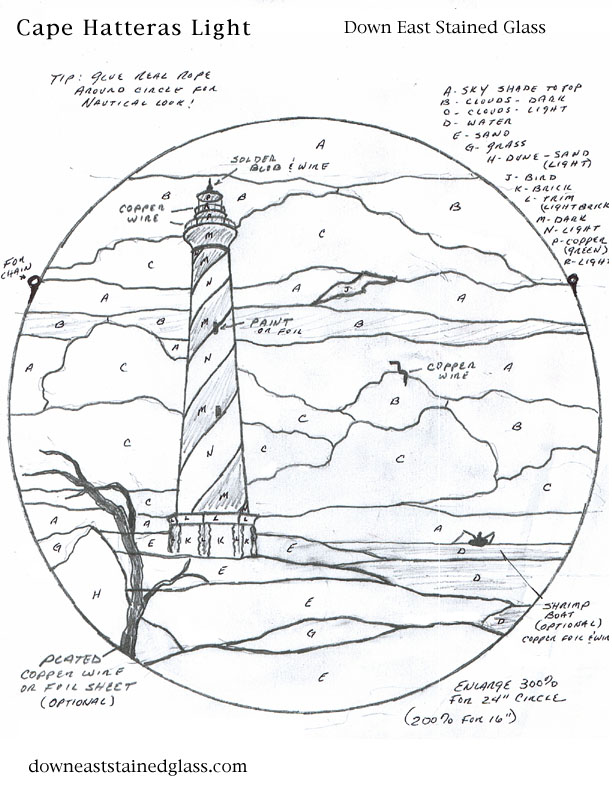 Cape Hatteras Light
Down East Stained Glass
TIP: GLUE REAL ROPE
AROUND CIRCLE FOR
NAUTICAL LOOK!
A- SKY SHADE TO TOP
B- CLOUDS- DARK
C- CLOUDS- LIGHT
D- WATER
E- SAND
G- GRASS
H- DUNE-SAND
(LIGHT)
J- BIRD
K- BRICK
L- TRIM
(LIGHT BRICK
M-DARK
N-LIGHT
P-COPPER
(GREEN)
R-LIGHT
A
SOLDER
BLOB & WIRE
B
B
B
COPPER
WIRE
M
C
C
FOR
CHAIN
M
N
A
J
A
A
B
B
M
PAINT
OR FOIL
B
A
A
C
N
A
COPPER
WIRE
B
M
C
B
C
N
C
C
C
C
M
A
A
L
L
L
L
A
G
E
K
L
K
L
K
E
D
E
D
H
E
D
G
E
SHRIMP
BOAT
(OPTIONAL)
COPPER FOIL & WIRE
PLATED
COPPER WIRE
OR FOIL SHEET
(OPTIONAL)
ENLARGE 300%
FOR 24" CIRCLE
(200% FOR 16")
downeaststainedglass.com